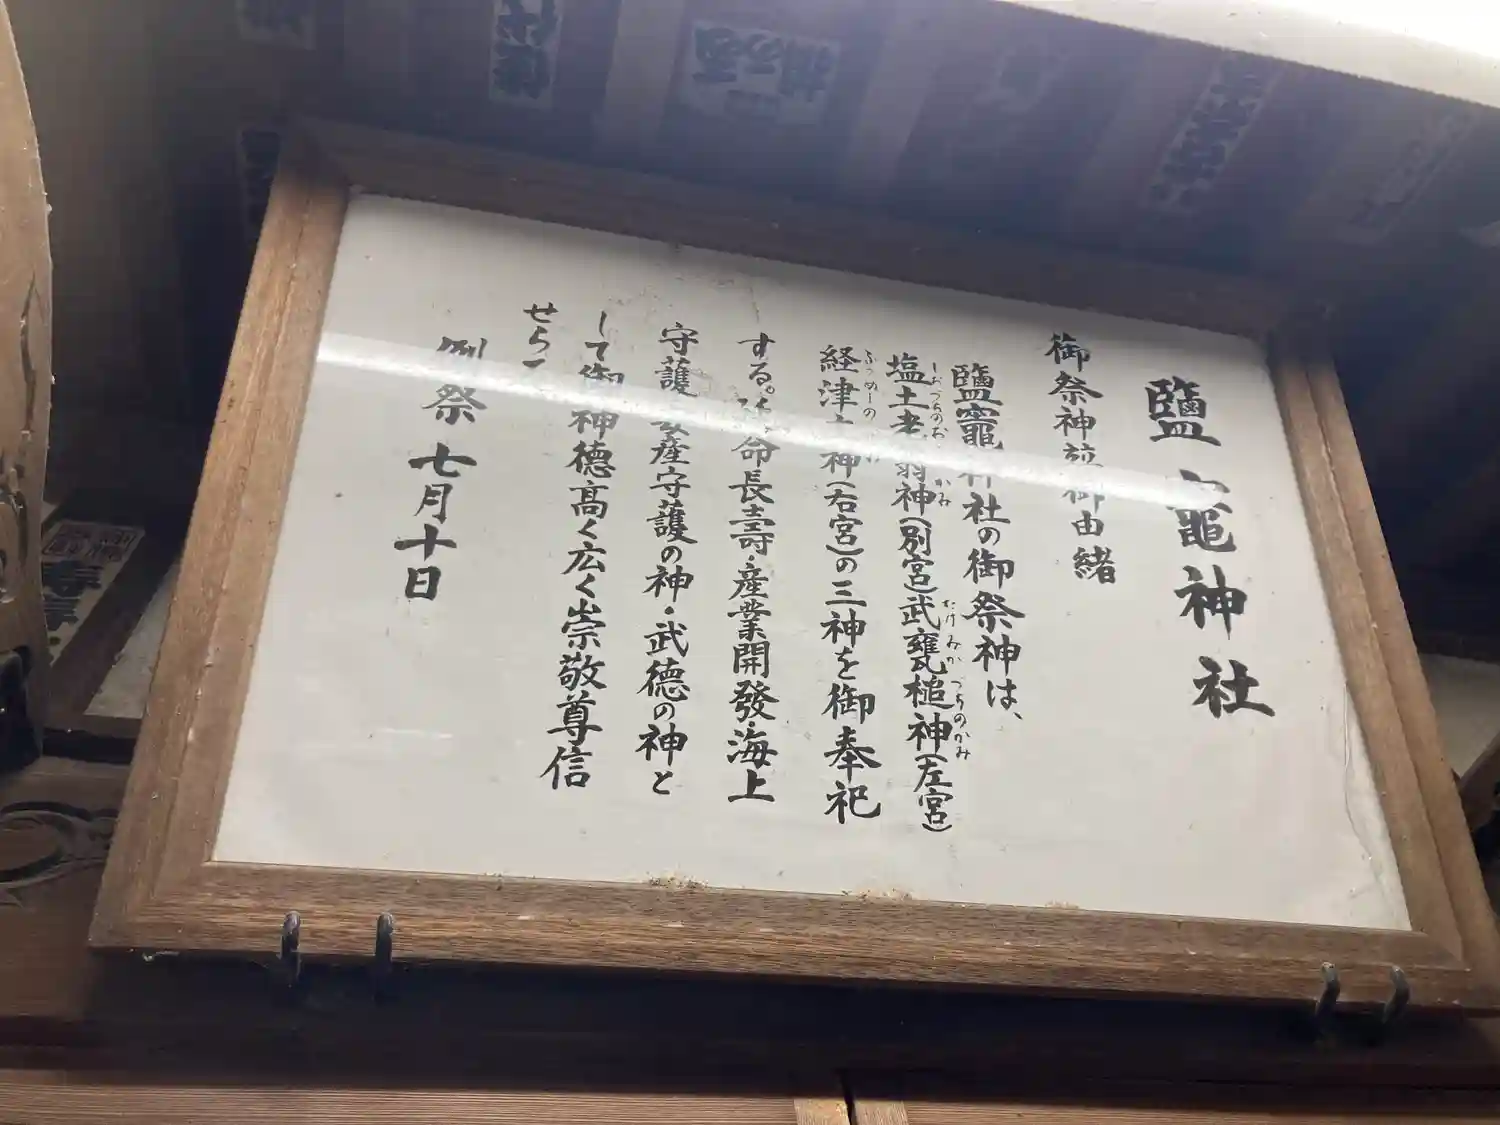 鹽竈神社
御祭神並御由緒
鹽竈神社の御祭神は、
塩土老翁神(別宮)武甕槌神(左宮)
経津主神(右宮)の三神を御奉祀
する。命長寿・産業開發・海上
守護 産守護の神・武徳の神と
して御神徳高く広く崇敬尊信
せら
例祭 七月十日